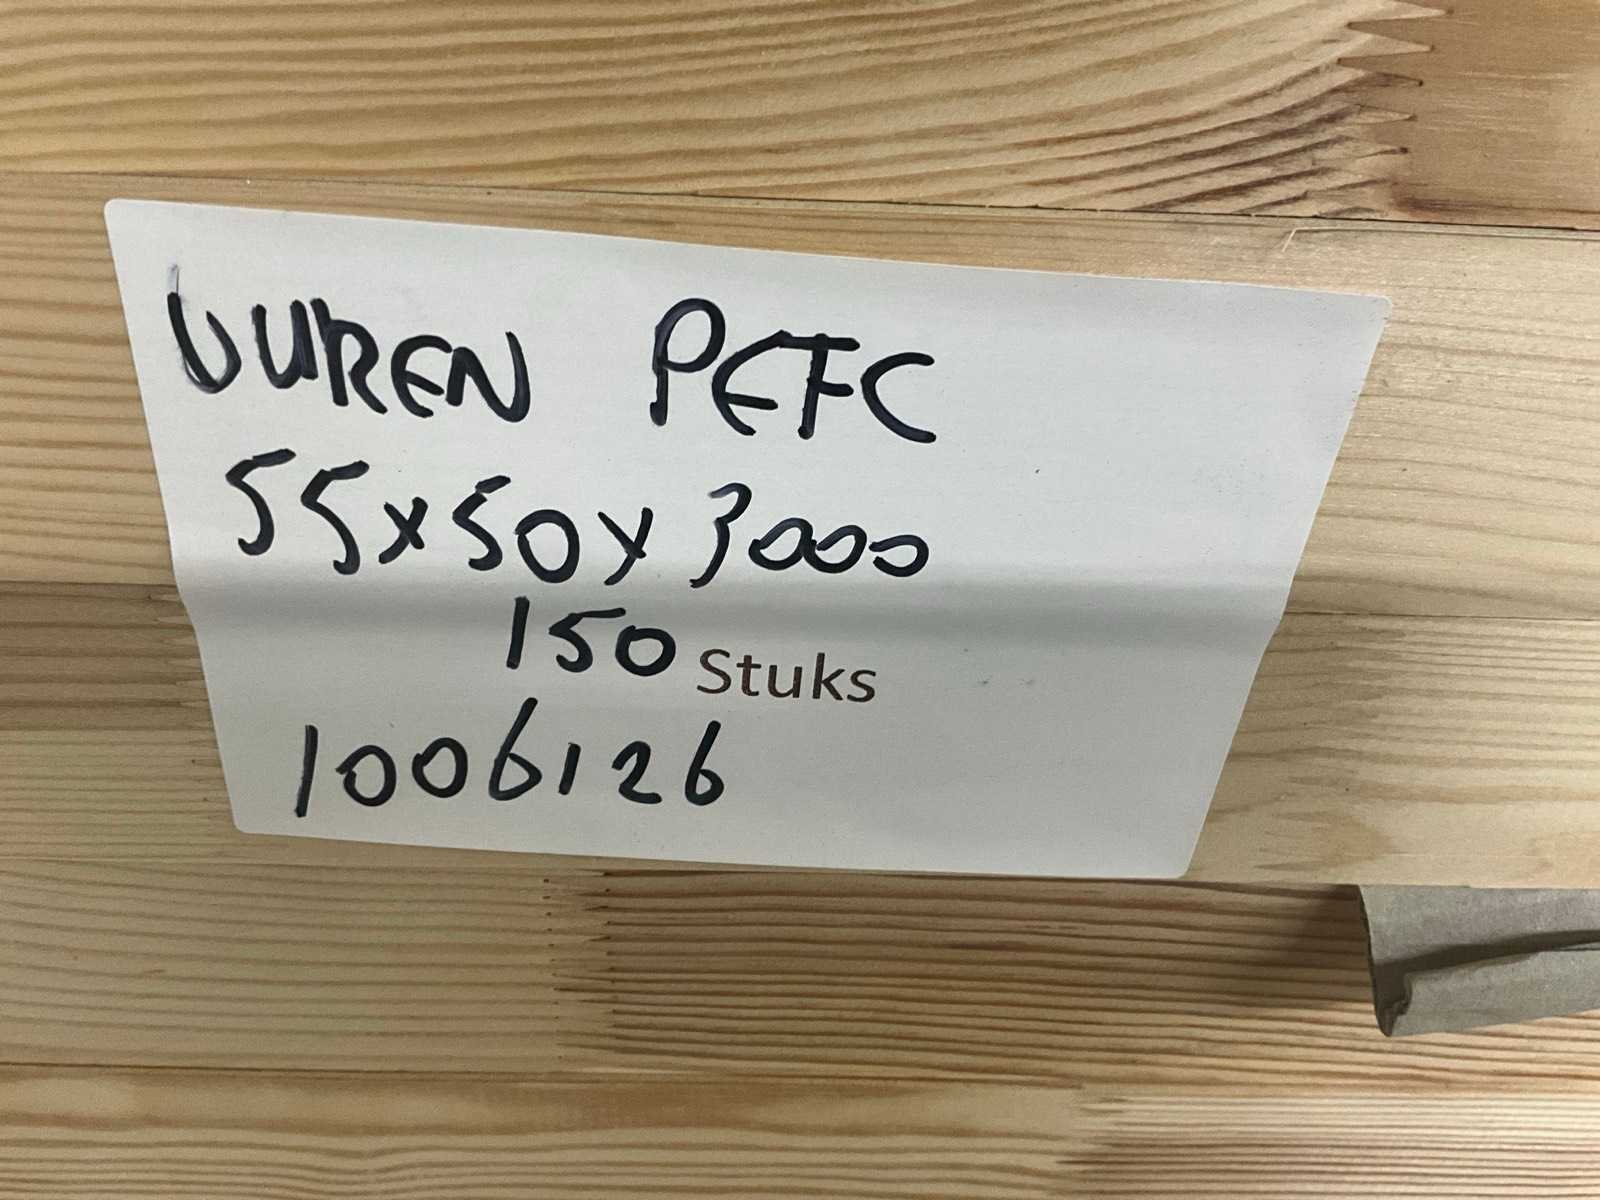 VUREN PEFC
55x50x3000
150 Stuks
1006126